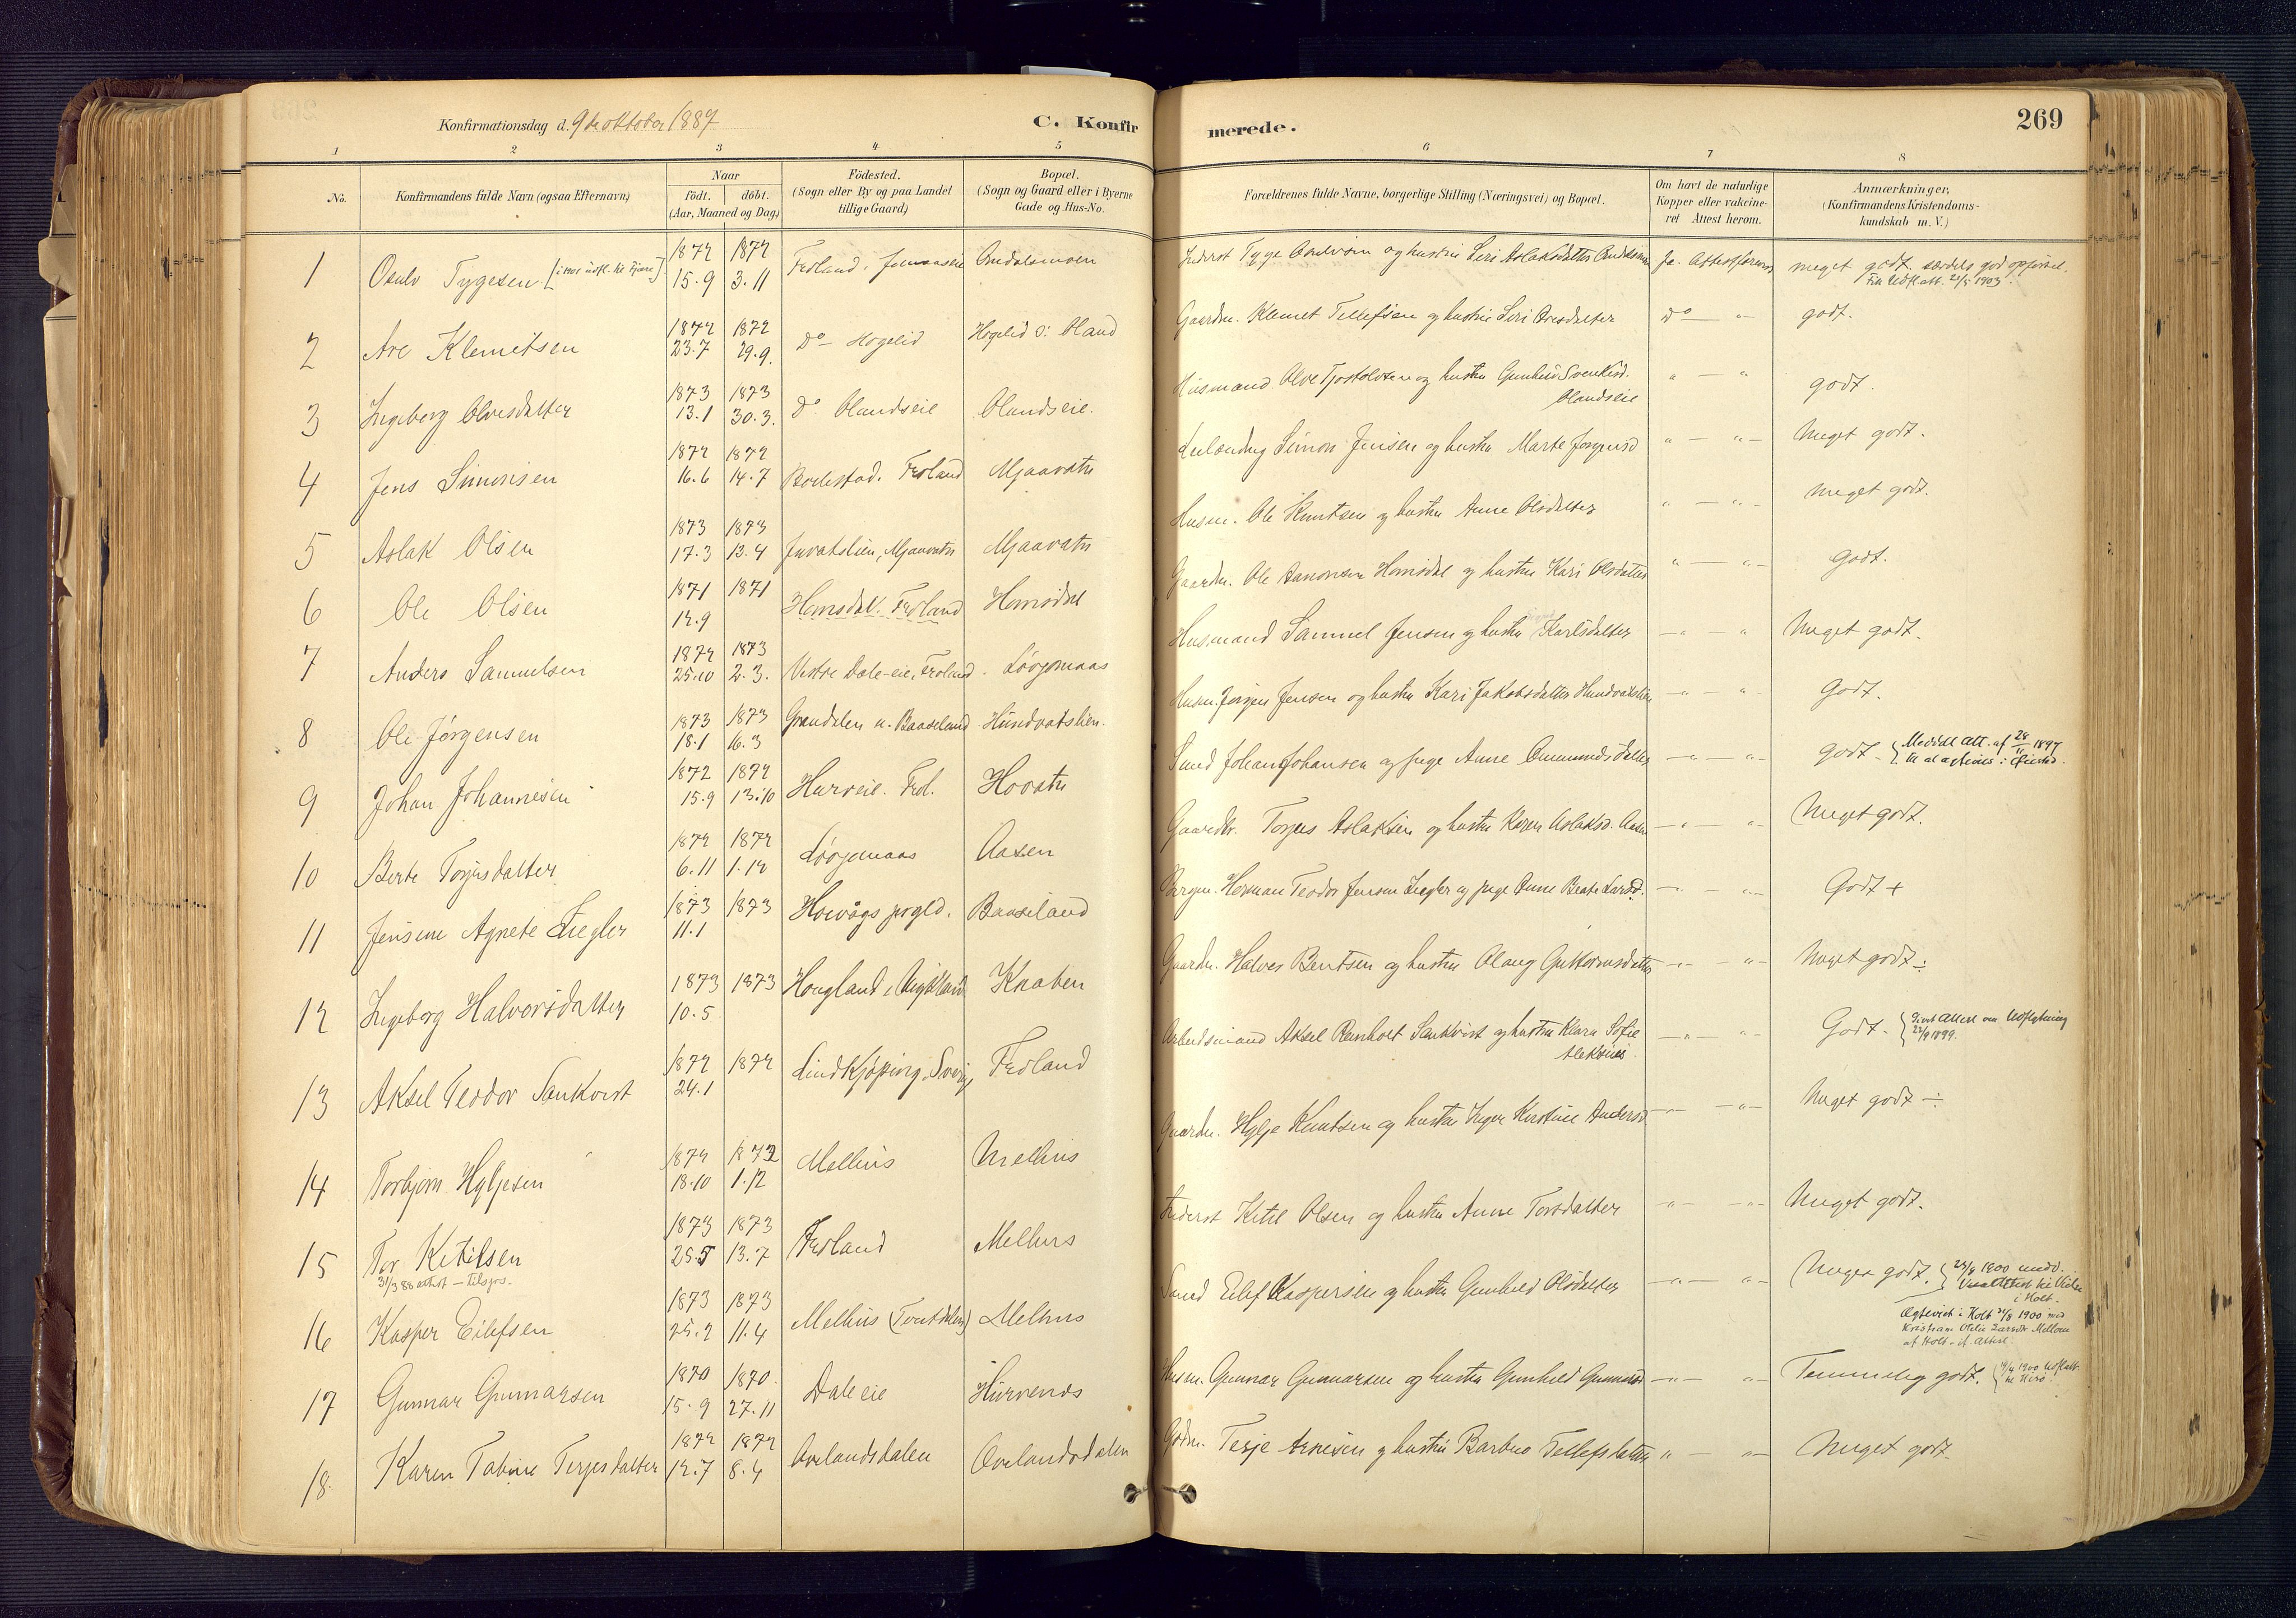 Konfirmationsdag d. 9de oktober 1887 C. Konfir merede. 269
1 2 3 4 5 6 7 8
No. Konfirmandens fulde Navn (ogsaa Efternavn) Naar födt. döbt. (Aar, Maaned og Dag) Födested. (Sogn eller By og paa Landet tillige Gaard) Bopæl. (Sogn og Gaard eller i Byerne Gade og Hus-No. Forældrenes fulde Navne, borgerlige Stilling (Næringsvei) og Bopæl. Om havt de naturlige Kopper eller vakcineret Attest herom. Anmærkninger, (Konfirmandens Kristendomskundskab m. V.)
1 Osulv Tygesen 1872 15.9 1872 3.11 Froland Inderst Tyge og hustru Siri Aslaksdatter Ja. Attest meget godt. særdels god opførsel. 1903
2 Are Klemetsen 1872 23.7 1872 29.9. Do Høgelid Høgelid Gaardm. Klemet Tellefsen og hustru Siri Aresdatter Do — " godt.
3 Ingeborg Olvesdatter 1873 13.1 1873 30.3. Do Olandseie Olandseie. Husmand Olve Tjostolvsen og hustru Gunhild Olandseie " — " godt.
4 Jens Simonsen 1872 16.6 1872 14.7 Froland Mjaavatn Simon Jensen og hustru Marte " — " — Meget godt.
5 Aslak Olsen 1873 17.3 1873 13.4 Mjaavatn Mjaavatn Husm. Ole Knutsen og hustru Anne Olsdatter " — " — meget godt.
6 Ole Olsen 1871 12.9 1871 Homsdal. Froland Homsdal Gaardm. Ole Aanonsen Homsdal og hustru Kari Olsdatter " — " — godt.
7 Anders Samuelsen 1872 25.10 1873 2.3. Vestre Dale-eie, Froland Løvjomaas Husmand Samuel Jensen og hustru Karlsdatter — " — " Meget godt.
8 Ole Jørgensen 1873 18.1 1873 16.3 Baaseland Hundvatslien. Husm. Jørgen Jensen og hustru Kari Jakobsdatter — " — " Godt.
9 Johan Johannesen 1872 15.9 1872 13.10 Hurveie. Frol. Hovatn Smed Johan Johansen og pige Anne — " — " — godt. Meddelt att. af 28/11 1897
10 Berte Torjusdatter 1872 6.11 1872 1.12 Løvjomaas Aasen Gaardbr. Torjus Aslaksen og hustru Karen Aslaksd. Aasen — " — " — Meget godt.
11 Jensine Agnete Ziegler 1873 11.1 1873 Høivågs prgld. Baaseland Herman Teodor Jensen Ziegler og pige Anne Beate Larsd. — " — " — Godt +
12 Ingeborg Halvorsdatter 1873 10.5 1873 Hougland i Knaben Gaardm. Halvor Bentsen og hustru Olaug Guttormsdatter — " — " — Meget godt ÷
13 Aksel Teodor Sankvist 1872 24.1 1872 Lindkjøping, Sverig Froland Arbeidsmand Aksel Reinholt Sankvist og hustru Klara Sofie — " — " Godt. Attest om Udflytning 1899.
14 Torbjørn Hyljesen 1872 18.10 1872 1.12 Melhus Melhus Gaardm. Hylje Knutsen og hustru Inger Kirstine Andersd — " — " — Meget godt ÷
15 Tor Ketilsen 1873 25.5 1873 13.7 Froland Melhus Inderst Ketil Olsen og hustru Anne Torsdatter " — " — Meget godt.
31/3 88 attest
16 Kasper Eilefsen 1873 25.2 1873 11.4 Melhus Melhus Smed Eilef Kaspersen og hustru Gunhild Olsdatter — " — " — Meget godt. 1900
i Holt.
Ægteviet i Holt 1900 med
Kristiane
af Holt
17 Gunnar Gunnarsen 1870 15.9 1870. 27.11 Dale eie Hurvenes Husm. Gunnar Gunnarsen og hustru Gunhild Gunnarsd — " — " — Temmelig godt. 1900
18. Karen Tabine Terjesdatter 1872 12.7 1872 8.4 Ovelandsdalen Ovelandsdalen Gdm. Terje Arnesen og hustru Barbro Tellefsdatter " — " — Meget godt.